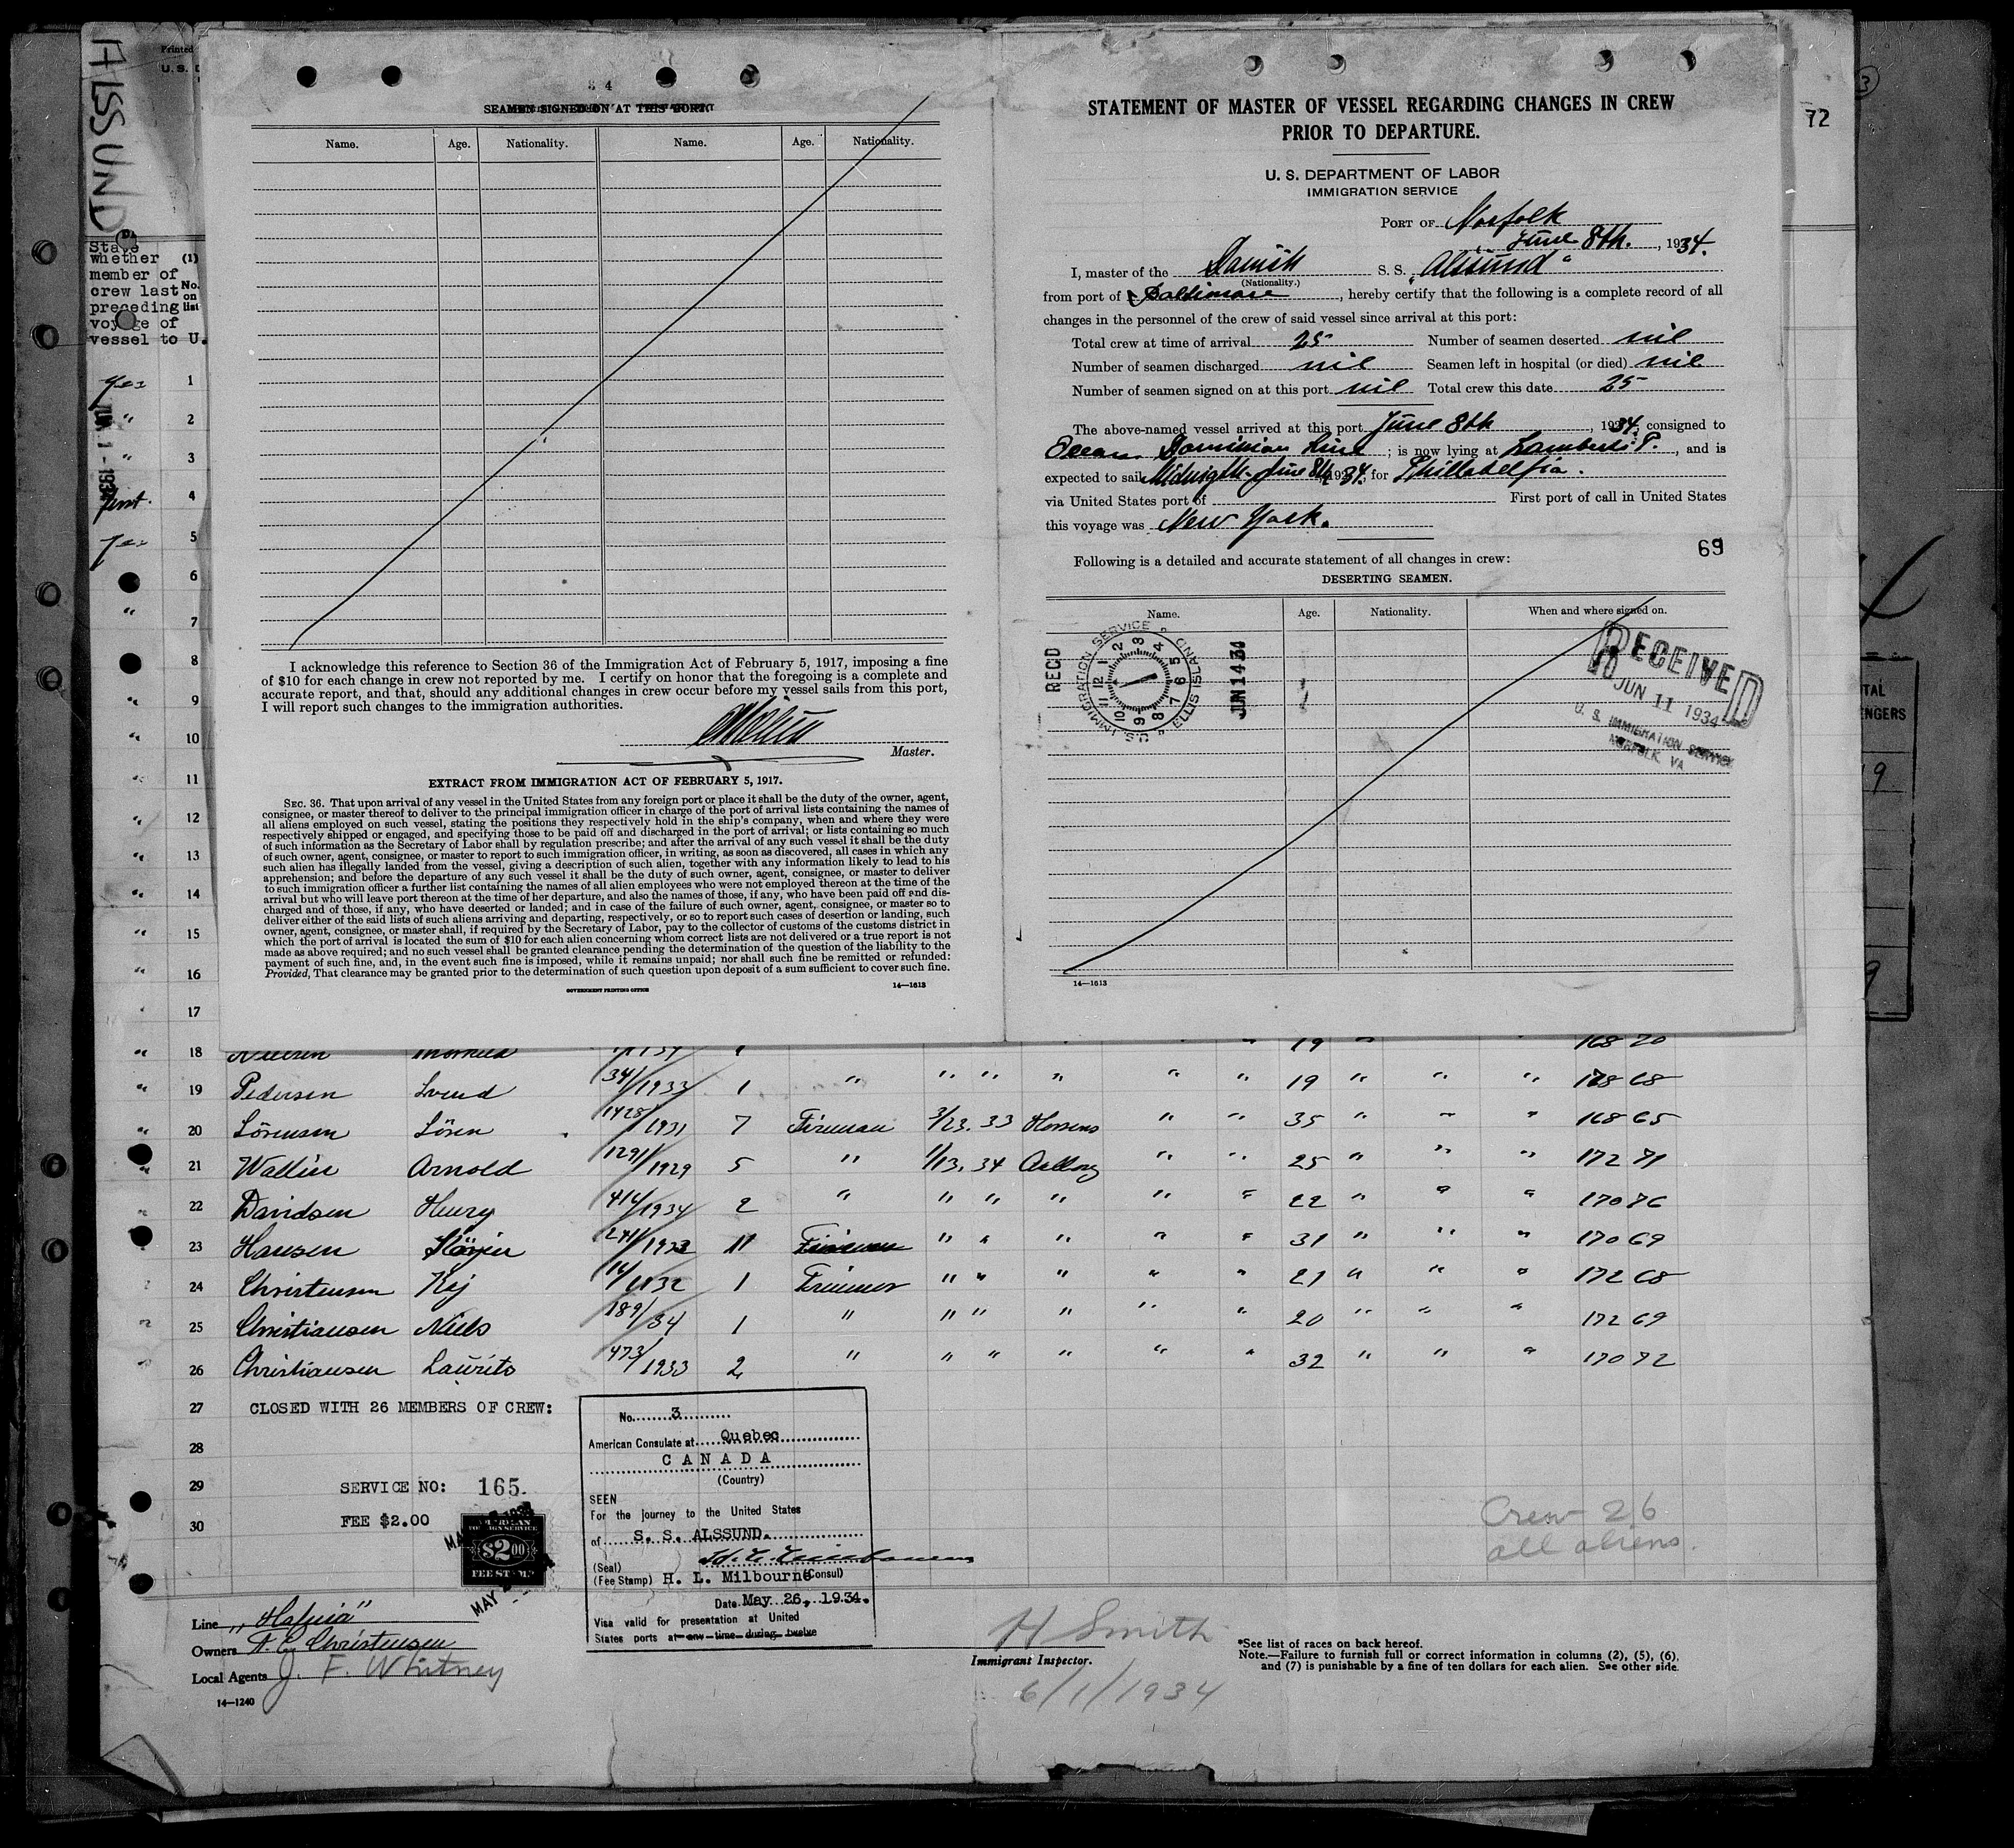 ALSSUND
Printed
U. S. D
State
whether
member of
crew last
preceding
voyage of
vessel to U.
(1)
No.
on
list
72
3
34
SEAMEN SIGNED ON AT THIS PORT.
Name. Age. Nationality. Name. Age. Nationality.
I acknowledge this reference to Section 36 of the Immigration Act of February 5, 1917, imposing a fine
of $10 for each change in crew not reported by me. I certify on honor that the foregoing is a complete and
accurate report, and that, should any additional changes in crew occur before my vessel sails from this port,
I will report such changes to the immigration authorities.
Master.
EXTRACT FROM IMMIGRATION ACT OF FEBRUARY 5, 1917.
SEC. 36. That upon arrival of any vessel in the United States from any foreign port or place it shall be the duty of the owner, agent,
consignee, or master thereof to deliver to the principal immigration officer in charge of the port of arrival lists containing the names of
all aliens employed on such vessel, stating the positions they respectively hold in the ship's company, when and where they were
respectively shipped or engaged, and specifying those to be paid off and discharged in the port of arrival; or lists containing so much
of such information as the Secretary of Labor shall by regulation prescribe; and after the arrival of any such vessel it shall be the duty
of such owner, agent, consignee, or master to report to such immigration officer, in writing, as soon as discovered, all cases in which any
such alien has illegally landed from the vessel, giving a description of such alien, together with any information likely to lead to his
apprehension; and before the departure of any such vessel it shall be the duty of such owner, agent, consignee, or master to deliver
to such immigration officer a further list containing the names of all alien employees who were not employed thereon at the time of the
arrival but who will leave port thereon at the time of her departure, and also the names of those, if any, who have been paid off and dis-
charged and of those, if any, who have deserted or landed; and in case of the failure of such owner, agent, consignee, or master so to
deliver either of the said lists of such aliens arriving and departing, respectively, or so to report such cases of desertion or landing, such
owner, agent, consignee, or master shall, if required by the Secretary of Labor, pay to the collector of customs of the customs district in
which the port of arrival is located the sum of $10 for each alien concerning whom correct lists are not delivered or a true report is not
made as above required; and no such vessel shall be granted clearance pending the determination of the question of the liability to the
payment of such fine, and, in the event such fine is imposed, while it remains unpaid; nor shall such fine be remitted or refunded:
Provided, That clearance may be granted prior to the determination of such question upon deposit of a sum sufficient to cover such fine.
GOVERNMENT PRINTING OFFICE 14—1613
STATEMENT OF MASTER OF VESSEL REGARDING CHANGES IN CREW
PRIOR TO DEPARTURE.
U. S. DEPARTMENT OF LABOR
IMMIGRATION SERVICE
PORT OF Norfolk
June 8th. , 1934.
I, master of the Danish S. S. "Alssund"
(Nationality.)
from port of Baltimore , hereby certify that the following is a complete record of all
changes in the personnel of the crew of said vessel since arrival at this port:
Total crew at time of arrival 25 Number of seamen deserted nil
Number of seamen discharged nil Seamen left in hospital (or died) nil
Number of seamen signed on at this port nil Total crew this date 25
The above-named vessel arrived at this port June 8th , 1934, consigned to
Ocean Dominion Line ; is now lying at Lamberts P. , and is
expected to sail Midnight June 8th, 1934, for Philladelfia.
via United States port of First port of call in United States
this voyage was New York.
69
Following is a detailed and accurate statement of all changes in crew:
DESERTING SEAMEN.
Name. Age. Nationality. When and where signed on.
REC'D
U.S. IMMIGRATION SERVICE ELLIS ISLAND
JUN 14 34
RECEIVED
JUN 11 1934
U. S. IMMIGRATION SERVICE
NORFOLK VA
14—1613
TAL
ENGERS
yes 1
JUN 1 - 1934
" 2
" 3
first. 4
yes 5
6
" 7
8
" 9
" 10
" 11
" 12
" 13
" 14
" 15
" 16
" 17
" 18 Nielsen 19 " " 168 70
" 19 Pedersen Svend 34/1933 1 " " " " " " 19 " " " 178 68
" 20 Sörensen Sören 1428/1931 7 Fireman 3/23. 33 Horsens " " 35 " " " 168 65
" 21 Wallin Arnold 1291/1929 5 " 1/13. 34 Aalborg " " 25 " " " 172 71
" 22 Davidsen Henry 414/1934 2 " " " " " " 22 " " " 170 76
23 Hansen 241/1933 11 Fireman " " " " " 31 " " " 170 69
24 Christensen Kej 14/1132 1 Trimmer " " " " " 21 " " " 172 68
25 Christiansen Niels 189/34 1 " " " " " " 20 " " " 172 69
26 Christiansen Laurits 473/1933 2 " " " " " " 32 " " " 170 72
27 CLOSED WITH 26 MEMBERS OF CREW:
28
29 SERVICE NO: 165.
30 FEE $2.00
AMERICAN
FOREIGN SERVICE
$2.00
FEE STAMP
MAY
No. 3
American Consulate at Quebec
CANADA
(Country)
SEEN
For the journey to the United States
of S. S. ALSSUND.
(Seal)
(Fee Stamp) H. L. Milbourne (Consul)
Date May 26, 1934.
Visa valid for presentation at United
States ports at any time during twelve
Crew 26
all aliens.
Line "Hafnia"
Owners A. C. Christensen
Local Agents J. F. Whitney
14—1240
H Smith
Immigrant Inspector.
6/1/1934
*See list of races on back hereof.
Note.—Failure to furnish full or correct information in columns (2), (5), (6),
and (7) is punishable by a fine of ten dollars for each alien. See other side.